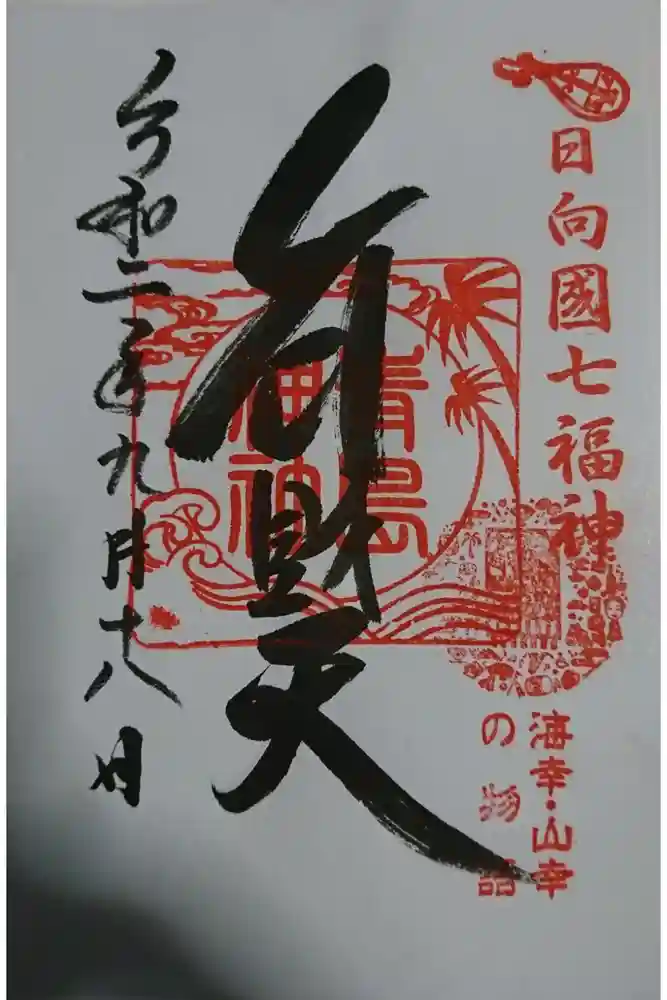 日向國七福神
海幸・山幸
の物語
弁財天
青島
海神
令和二年九月十八日